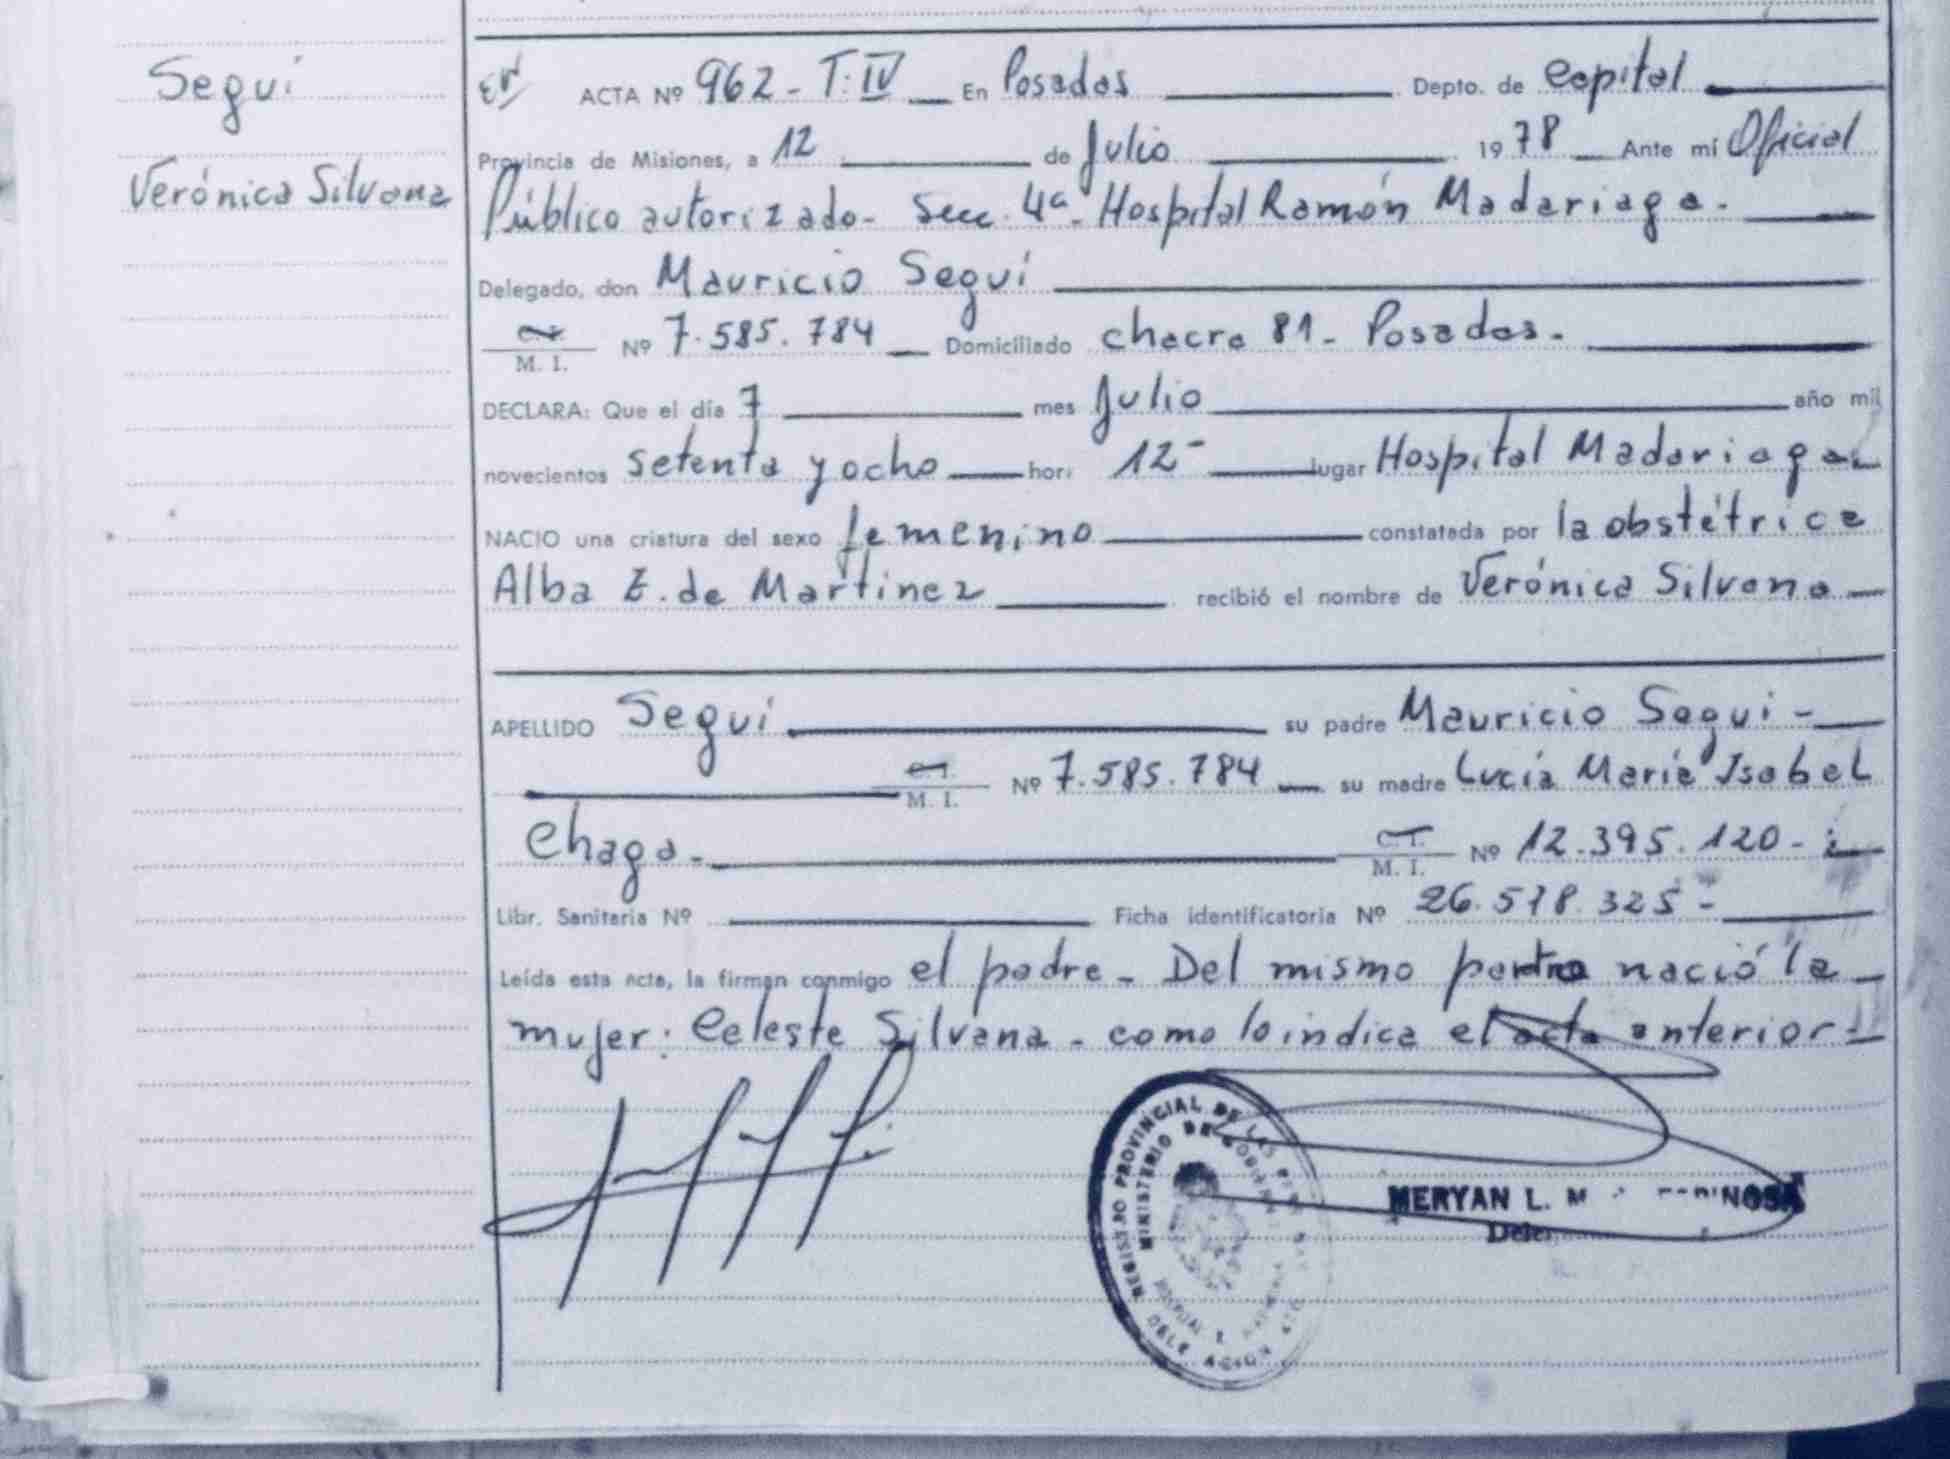 Seguí
Verónica Silvana
ACTA Nº 962 - T: IV En Posadas Depto. de Capital
Provincia de Misiones, a 12 de Julio 1978 Ante mí Oficial
Público autorizado - Secc. 4ª - Hospital Ramón Madariaga.
Delegado, don Mauricio Seguí
M. I. Nº 7.585.784 Domiciliado chacra 81 - Posadas.
DECLARA: Que el día 7 mes Julio año mil
novecientos setenta y ocho hora 12 lugar Hospital Madariaga
NACIO una criatura del sexo femenino constatada por la obstétrica
Alba E. de Martinez recibió el nombre de Verónica Silvana
APELLIDO Seguí su padre Mauricio Segui
C.I. M. I. Nº 7.585.784 su madre Lucía María Isabel
Chaga - C.I. M. I. Nº 12.395.120 -
Libr. Sanitaria Nº Ficha identificatoria Nº 26.578.325 -
Leída esta acta, la firman conmigo el padre - Del mismo parto nació la
mujer: Celeste Silvana - como lo indica el acta anterior -
REGISTRO PROVINCIAL DE LAS
MINISTERIO DE
MERYAN L.